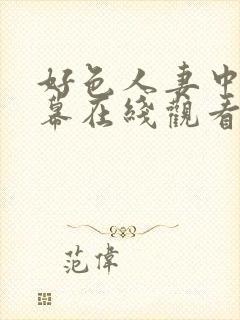 好色人妻中
幕在綫觀看
范偉